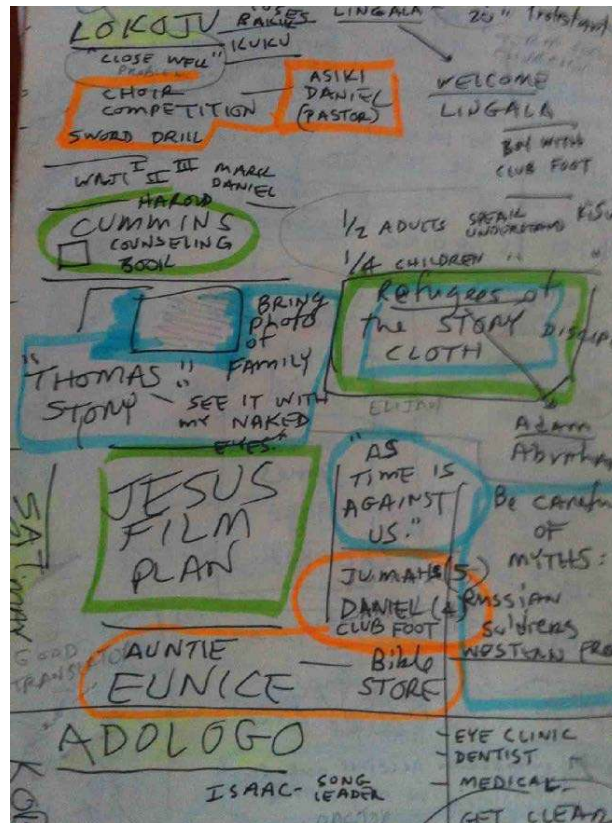 LOKOJU
KUKU
LINGALA -
"CLOSE WELL"
PROBLEM
CHOIR
COMPETITION
SWORD DRILL
ASIKI
DANIEL
(PASTOR)
WELCOME
LINGALA
BOY WITH
CLUB FOOT
WAJI I II III MARK
DANIEL
HAROLD
CUMMINS
COUNSELING
BOOK
1/2 ADULTS SPEAK
UNDERSTAND
1/4 CHILDREN " "
BRING
PHOTO
OF
FAMILY
"THOMAS"
STORY
SEE IT WITH
MY NAKED
EYES."
Refugees of
the STORY
CLOTH
ELIJAH
Adam
JESUS
FILM
PLAN
"AS
TIME IS
AGAINST
US."
Be CAREFUL
OF
MYTHS:
RUSSIAN
SOLDIERS
WESTERN
JUMAHS (5)
DANIEL (4)
CLUB FOOT
AUNTIE
EUNICE
— Bible
STORE
GOOD
ADOLOGO
ISAAC - SONG
LEADER
- EYE CLINIC
- DENTIST
- MEDICAL
GET CLEAN